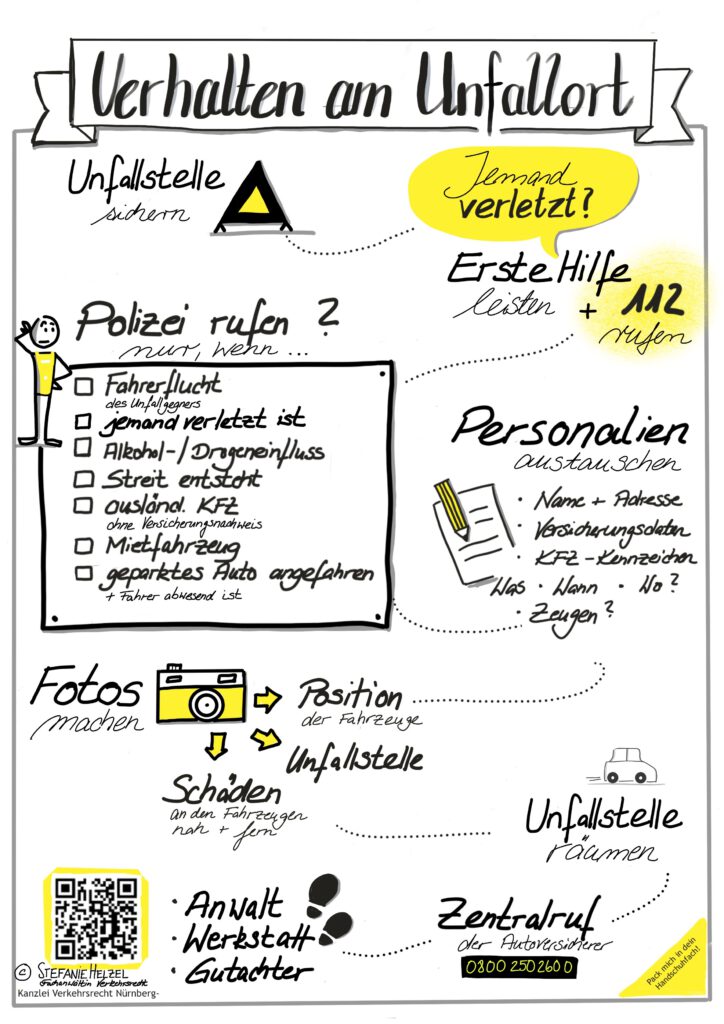 Verhalten am Unfallort
Unfallstelle
sichern
Jemand
verletzt?
Erste Hilfe
leisten + 112
rufen
Polizei rufen ?
nur, wenn ...
Fahrerflucht
des Unfallgegners
jemand verletzt ist
Alkohol-/Drogeneinfluss
Streit entsteht
ausländ. KFZ
ohne Versicherungsnachweis
Mietfahrzeug
geparktes Auto angefahren
+ Fahrer abwesend ist
Personalien
austauschen
· Name + Adresse
· Versicherungsdaten
· KFZ-Kennzeichen
Was · Wann · Wo?
· Zeugen?
Fotos
machen
Position
der Fahrzeuge
Unfallstelle
Schäden
an den Fahrzeugen
nah + fern
Unfallstelle
räumen
Zentralruf
der Autoversicherer
0800 2502600
· Anwalt
· Werkstatt
· Gutachter
© STEFANIE HELZEL
Fachanwältin Verkehrsrecht
Kanzlei Verkehrsrecht Nürnberg-
Pack mich in dein
Handschuhfach!